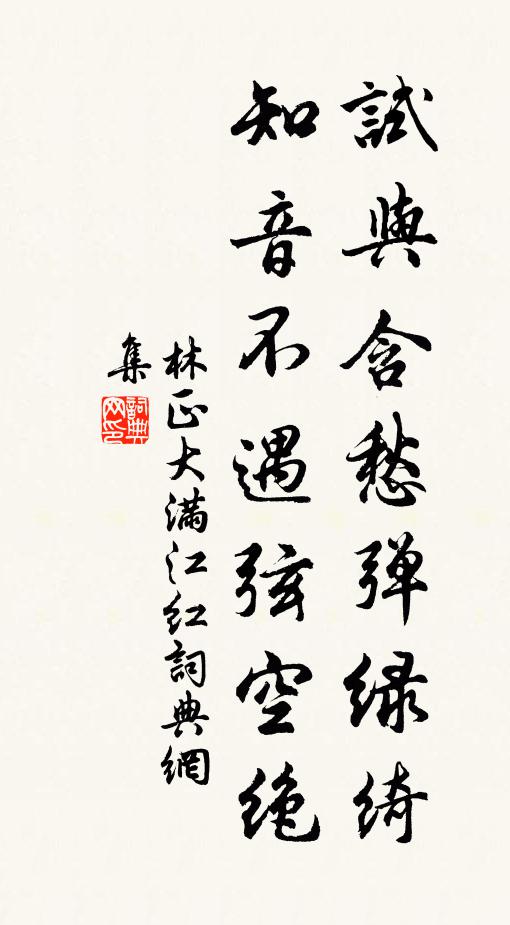 試與含愁弹緑綺
知音不遇弦空绝
林正大满江红詞典網
集
詞典网印